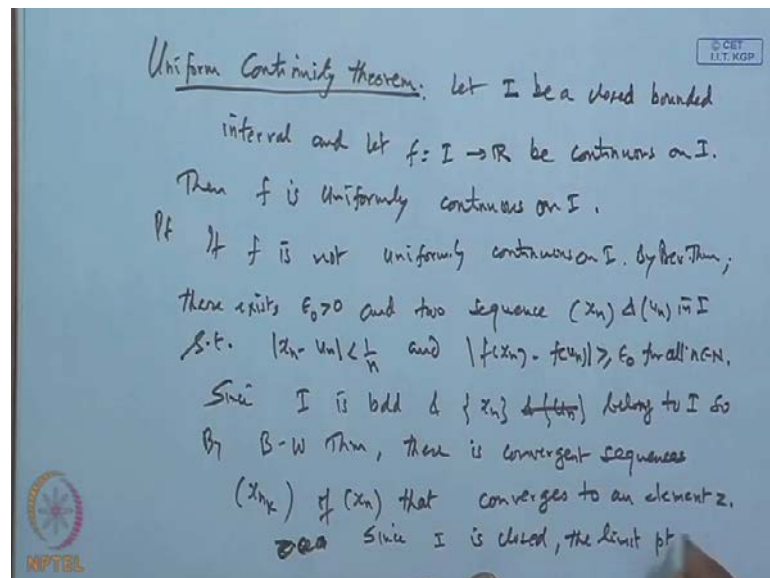 © CET
I.I.T. KGP
Uniform Continuity theorem: Let I be a closed bounded
interval and let f: I → R be continuous on I.
Then f is Uniformly continuous on I.
Pf If f is not uniformly continuous on I. By Prev. Thm;
there exists ε₀>0 and two sequence (xₙ) & (uₙ) in I
s.t. |xₙ - uₙ| < 1/n and |f(xₙ) - f(uₙ)| ≥ ε₀ for all n∈N.
Since I is bdd & {xₙ} & (uₙ) belong to I so
By B-W Thm, there is convergent sequences
(xₙₖ) of (xₙ) that converges to an element z.
Since I is closed, the limit pt
NPTEL